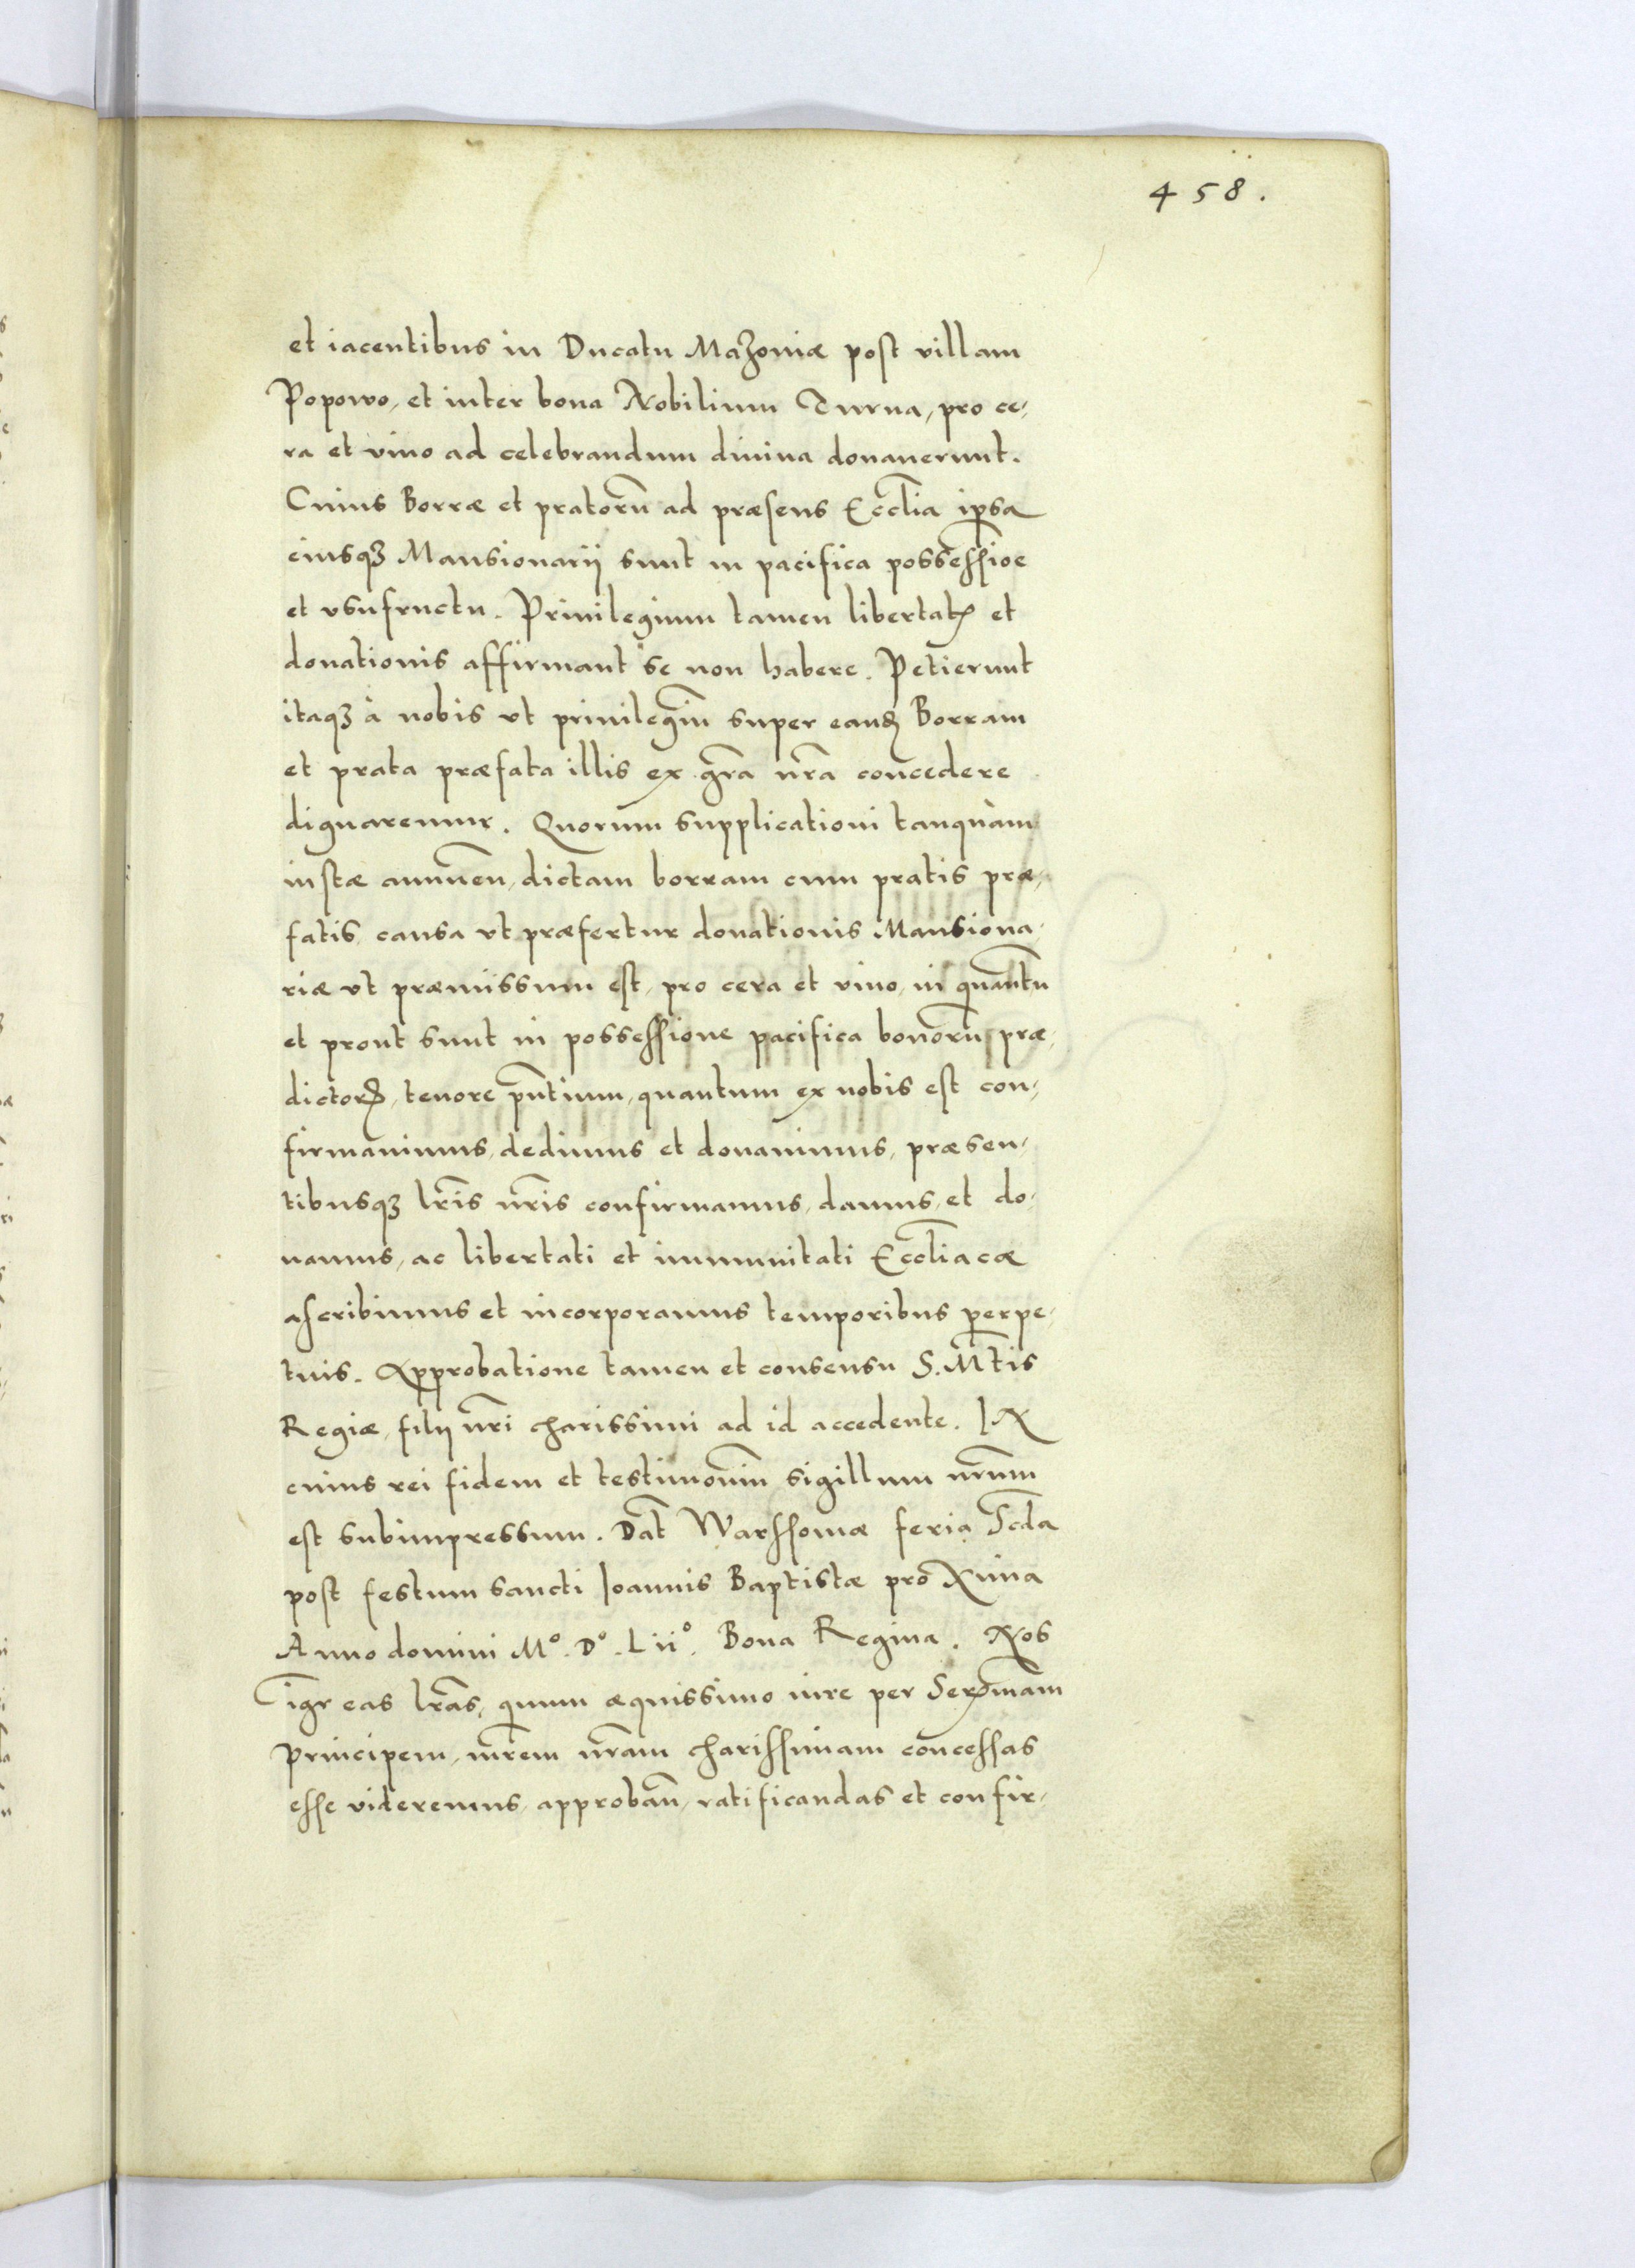 458.
et iacentibus in Ducatu Mazoniæ post villam
Popowo, et inter bona Nobilium Turna, pro ce,
ra et vino ad celebrandum diuina donauerunt.
Cuius Borræ et pratorū ad præsens Eccl̄ia ip̄sa
eiusqꝫ Mansionarij sunt in pacifica possessioe
et vsufructu. Priuilegium tamen libertatꝭ et
donationis affirmant se non habere. Petierunt
itaqꝫ à nobis vt priuilegiū super eandꝫ Borram
et prata præfata illis ex gr̄a nr̄a concedere
dignaremur. Quorum supplicationi tanquàm
iustæ annuen̄, dictam borram cum pratis præ,
fatis, causa vt præfertur donationis Mansiona,
riæ vt præmissum est, pro cera et vino, in quantū
et prout sunt in possessione pacifica bonorū præ,
dictorꝝ, tenore pn̄tium, quantum ex nobis est con,
firmauimus, dedimus et donauimus, præsen,
tibusqꝫ lr̄is nr̄is confirmamus, damus, et do,
namus, ac libertati et immunitati Eccl̄iacæ
ascribimus et incorporamus temporibus perpe,
tuis. Approbatione tamen et consensu S. M̄tis
Regiæ, filij nr̄i charissimi ad id accedente. IN
cuius rei fidem et testimoniū sigillum nr̄um
est subimpressum. Dat̄ Warssouiæ feria Scd̄a
post festum sancti Ioannis Baptistæ proxima
Anno domini Mº. Dº. Liiº. Bona Regina. Nos
igr̄ eas lr̄as, quum æquissimo iure per Serᵐᵃᵐ
Principem, mr̄em nr̄am charissimam concessas
esse videremus, approban̄, ratificandas et confir,